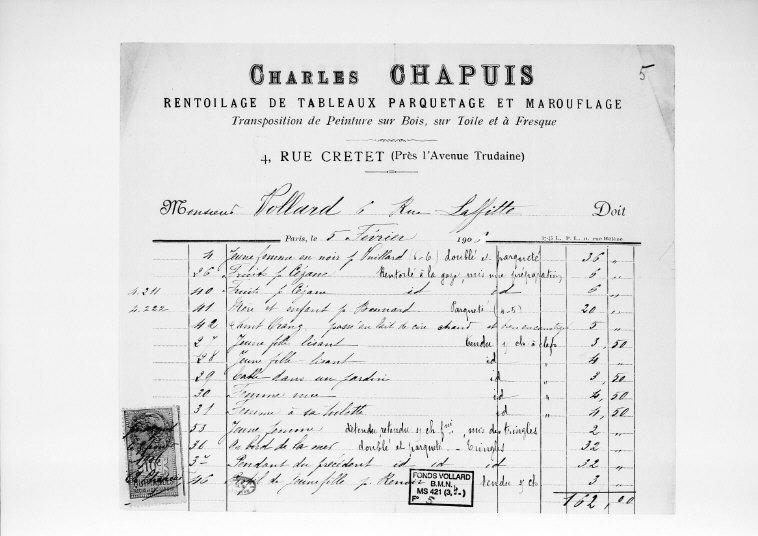 5
CHARLES CHAPUIS
RENTOILAGE DE TABLEAUX PARQUETAGE ET MAROUFLAGE
Transposition de Peinture sur Bois, sur Toile et à Fresque
4, RUE CRETET (Près l'Avenue Trudaine)
Monsieur Vollard 6 Rue Laffitte Doit
Paris, le 5 Février 190
4 Jeune femme en noir p Vuillard (4-6) doublé et parqueté 36 "
26 Fruits p Cézanne Rentoilé à la gaze, mais une préparation 6 "
4.211 40 Fruits p Cézanne id id 6 "
4.222 41 Mère et enfant p Bonnard Parqueté (4-5) 20 "
42 5 "
Jeune fille lisant tendue s ch à clefs 3, 50
28 Jeune fille lisant id " 4 "
29 dans un jardin id " 3, 50
30 Femme nue id " 4, 50
31 Femme à sa toilette id " 4, 50
53 Jeune femme détendu retendu s ch mis des tringles 2 "
36 Au bord de la mer doublé et parqueté - Tringles 32 "
Pendant du précédent id id id 32 "
46 de jeune fille p Renoir tendu s ch 3 "
162, 00
FONDS VOLLARD
B.M.N.
MS 421 (3,
F 5